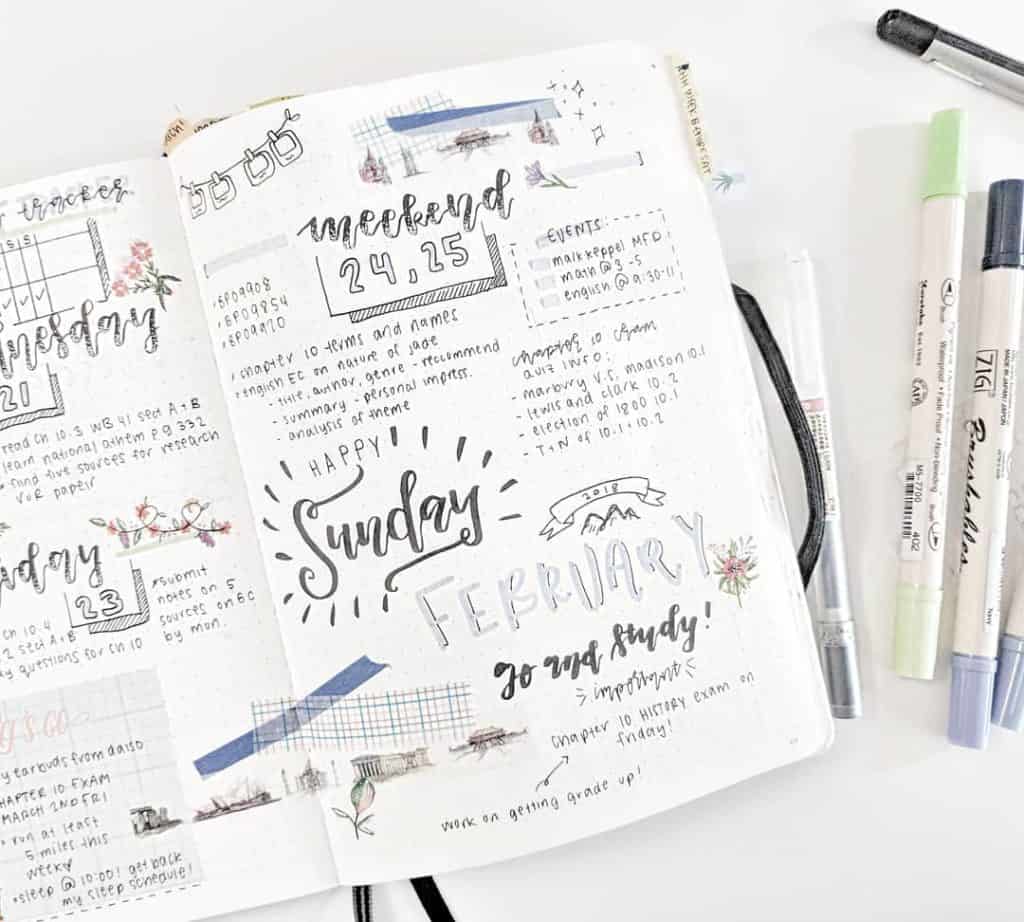 tracker
S S
21
read Ch 10.3 WB 41 sect A+B
learn national athem pg 332
find five sources for research
paper
23
*submit
notes on 5
sources on EC
by mon.
Ch 10.4
2 sect A+B
questions for Ch 10
earbuds from daiso
CHAPTER 10 EXAM
MARCH 2ND FRI!
run at least
5 miles this
week
*sleep @ 10:00! get back
my sleep schedule!
weekend
24, 25
EVENTS:
mark keppel MFD!
math @ 3-5
english @ 9:30-11
BP09908
BP09854
BP09920
chapter 10 terms and names
english EC on nature of jade
- title, author, genre - recommend
- summary - personal impress.
- analysis of theme
chapter 10 exam
quiz info:
- marbury v.s. madison 10.1
- lewis and clark 10.2
- election of 1800 10.1
- T+N of 10.1 + 10.2
HAPPY
Sunday
2018
FEBRUARY
go and study!
important
chapter 10 HISTORY exam on
friday!
work on getting grade up!
Kuretake
Waterproof • Fade Proof • Non-bleeding
MS-7700
402
ZIG
MADE IN JAPAN
Brushables